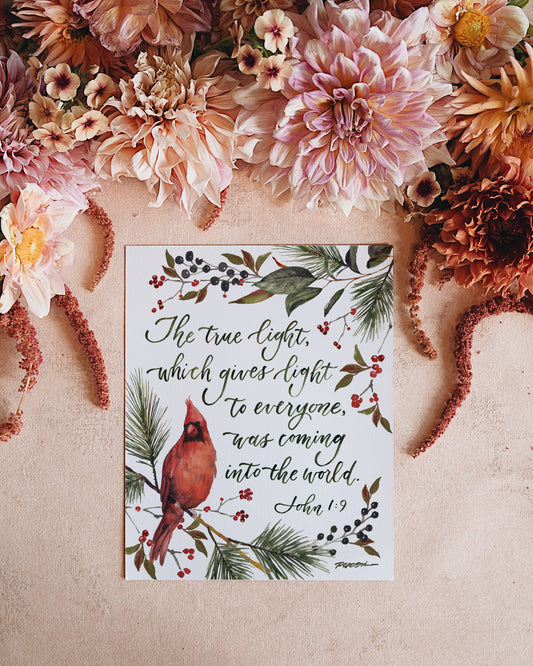 The true light,
which gives light
to everyone,
was coming
into the world.
John 1:9